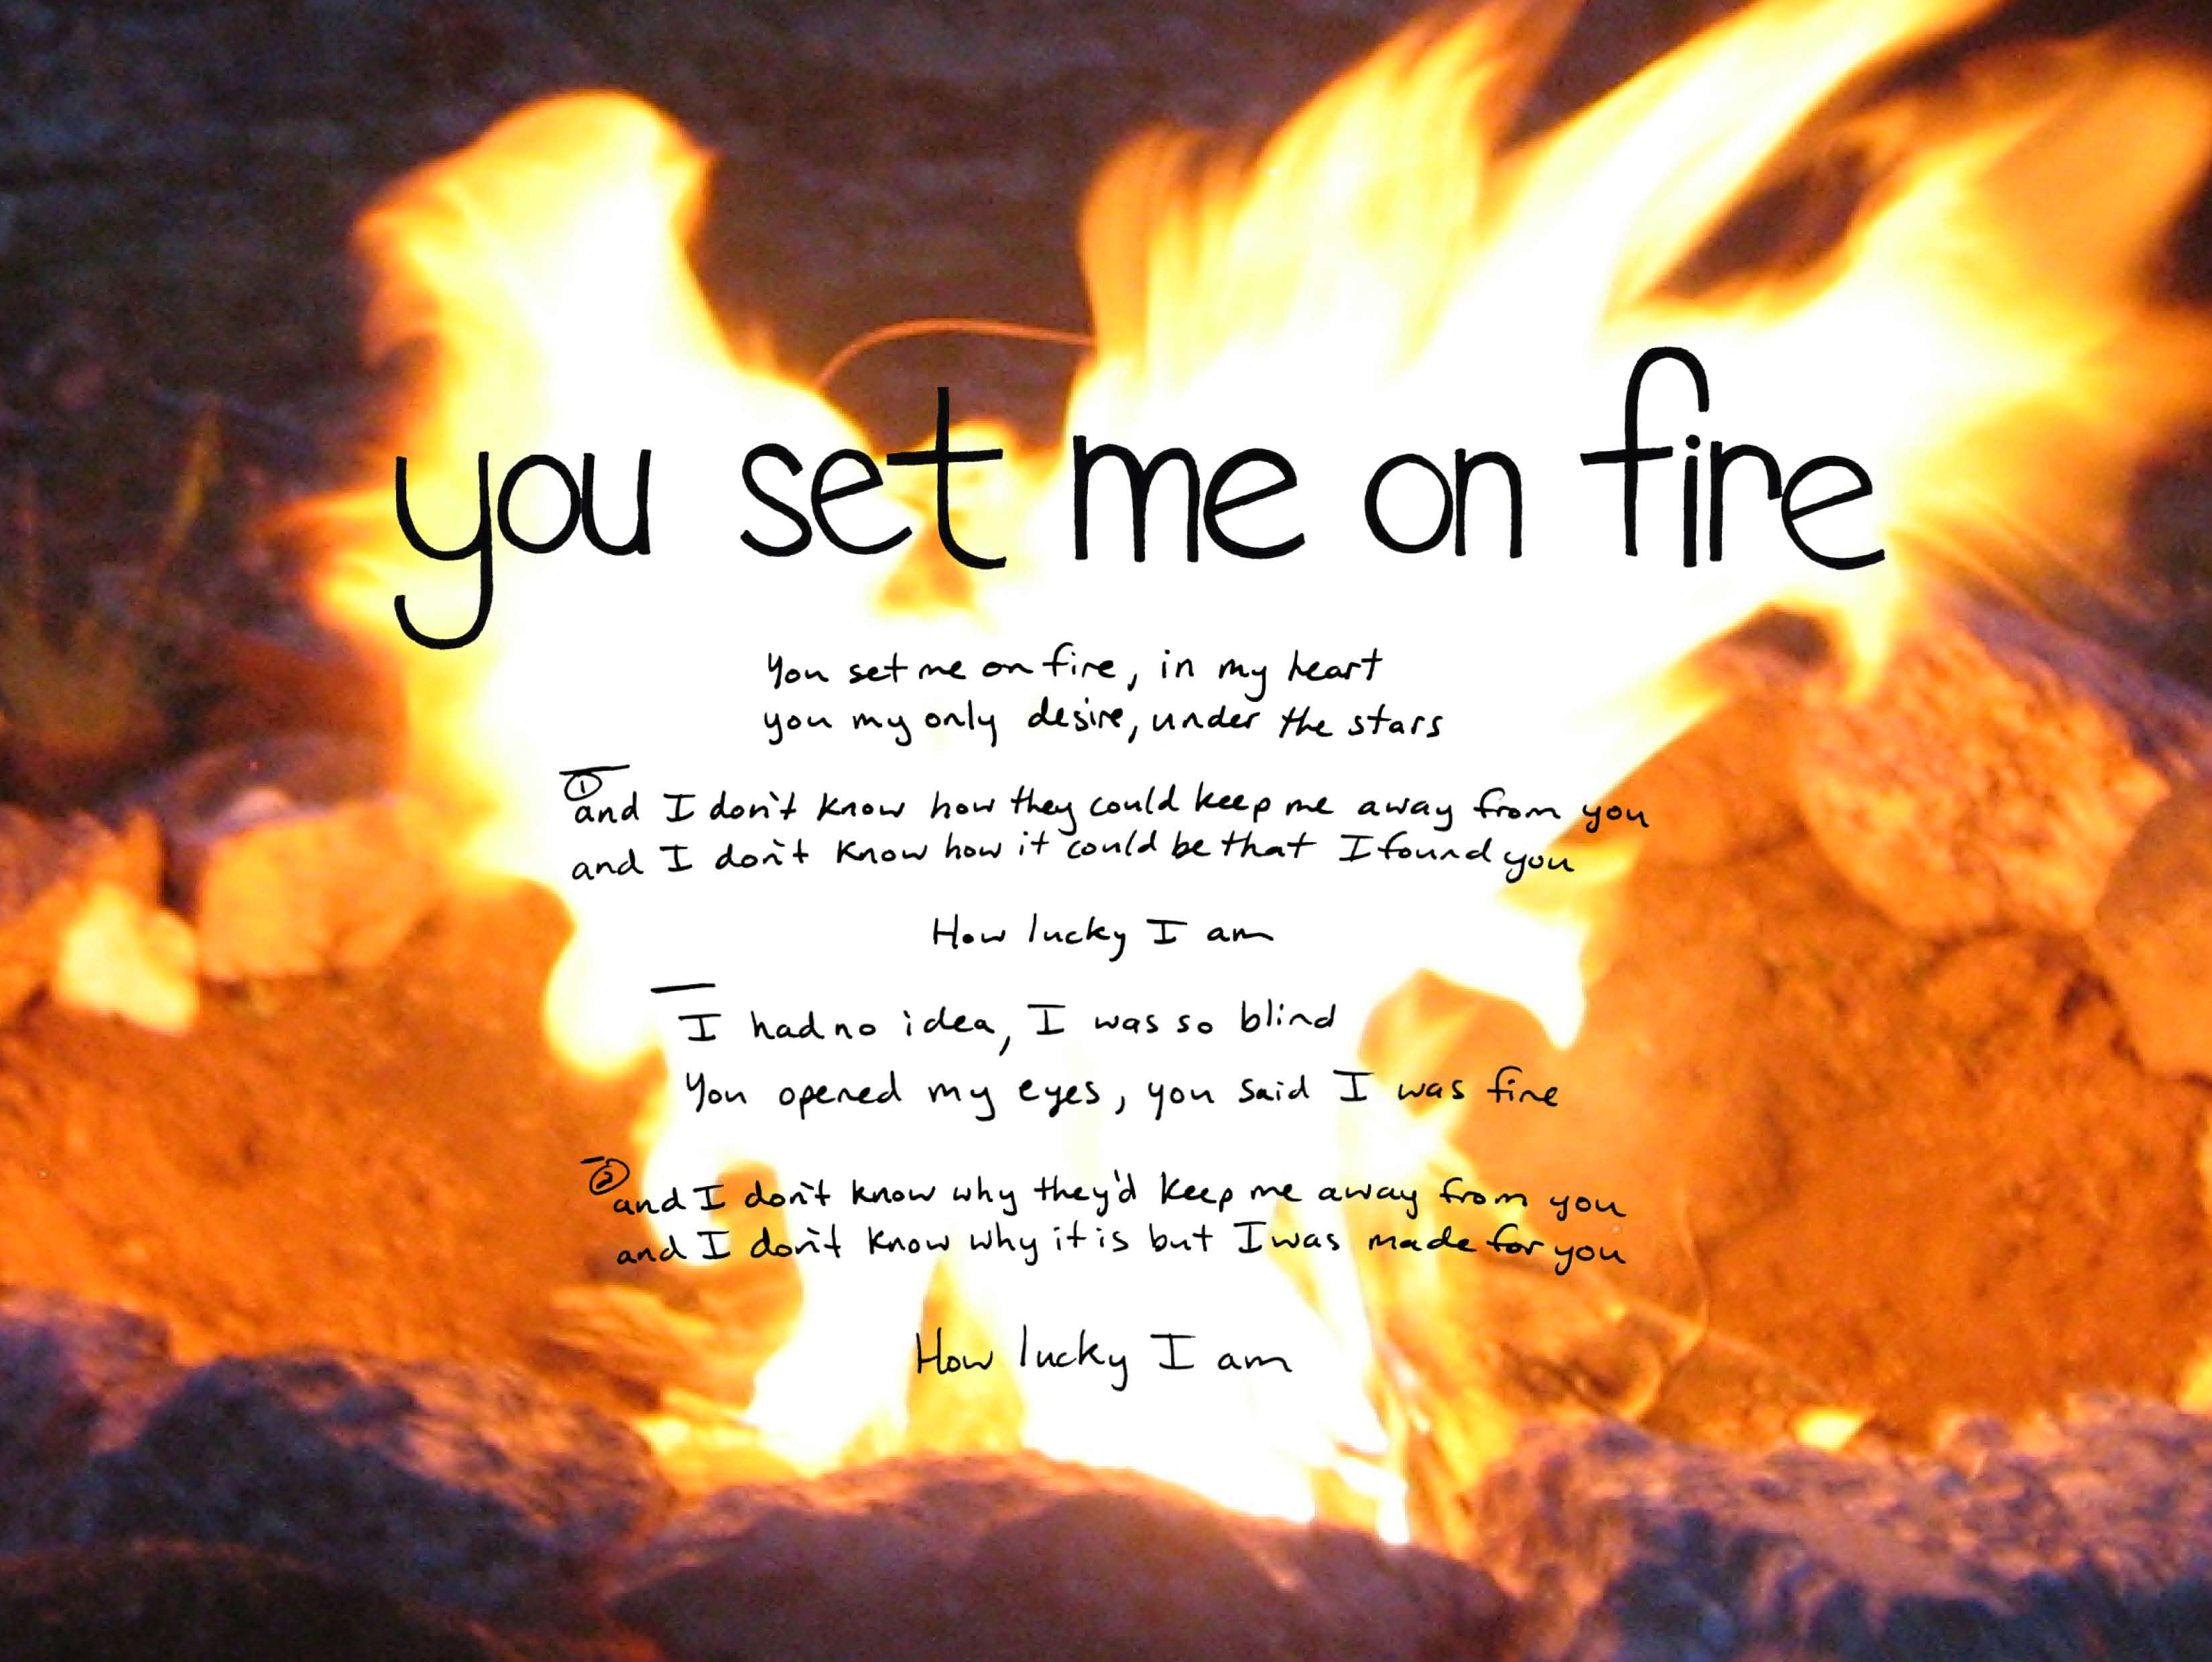 you set me on fire
You set me on fire, in my heart
you my only desire, under the stars
①
and I don't know how they could keep me away from you
and I don't know how it could be that I found you
How lucky I am
I had no idea, I was so blind
You opened my eyes, you said I was fine
②
and I don't know why they'd keep me away from you
and I don't know why it is but I was made for you
How lucky I am